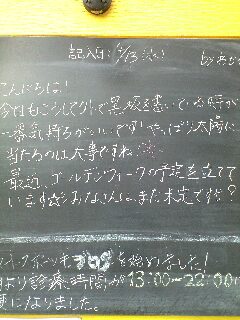 記入日: 4/13 (火)
こんにちは!
今日もこうして外で黒板を書いている時が
一番気持ちがいいです!!やっぱり太陽に
当たるのは大事ですね
最近、ゴールデンウィークの予定を立てて
います☆彡みなさんは、まだ未定ですか?
ブログを始めました!
より診療時間が13:00~22:00に
更になりました。